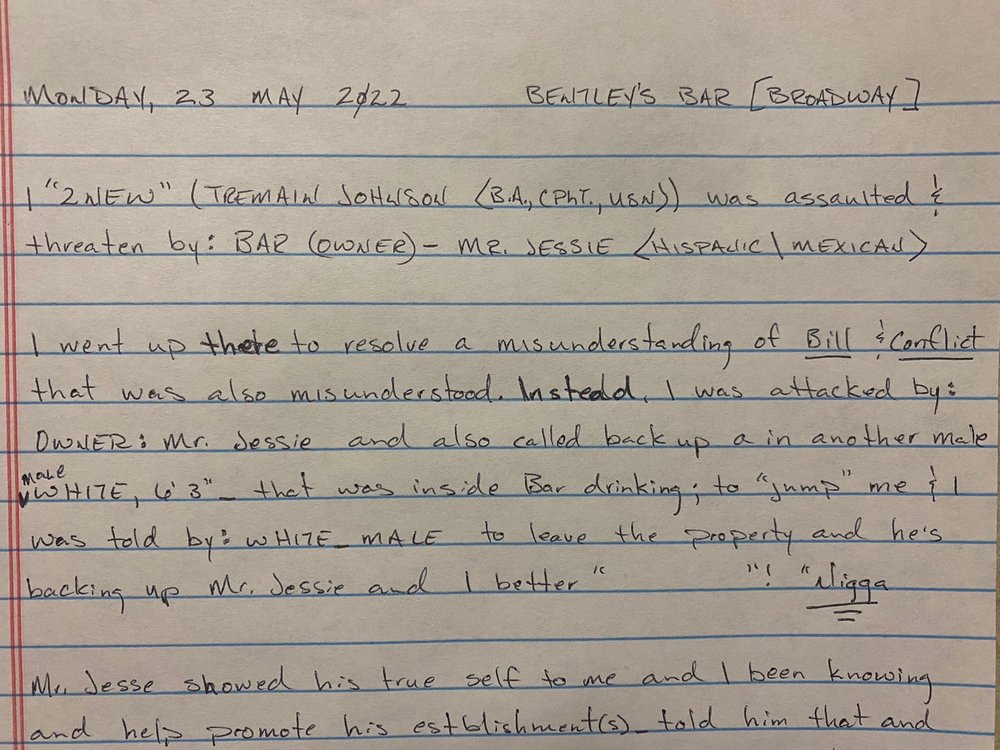 MONDAY, 23 MAY 2022 BENTLEY'S BAR [BROADWAY]
I "2NEW" (TREMAIN JOHNSON <B.A., CPhT., USN>) was assaulted &
threaten by: BAR (OWNER) - MR. JESSIE <HISPANIC | MEXICAN>
I went up there to resolve a misunderstanding of Bill & Conflict
that was also misunderstood. Instedd, I was attacked by:
OWNER: Mr. Jessie and also called back up a in another male
male
WHITE, 6'3"_ that was inside Bar drinking; to "jump" me & I
was told by: WHITE_MALE to leave the property and he's
backing up Mr. Jessie and I better " "! "Nigga
Mr. Jesse showed his true self to me and I been knowing
and help promote his estblishment(s)_ told him that and